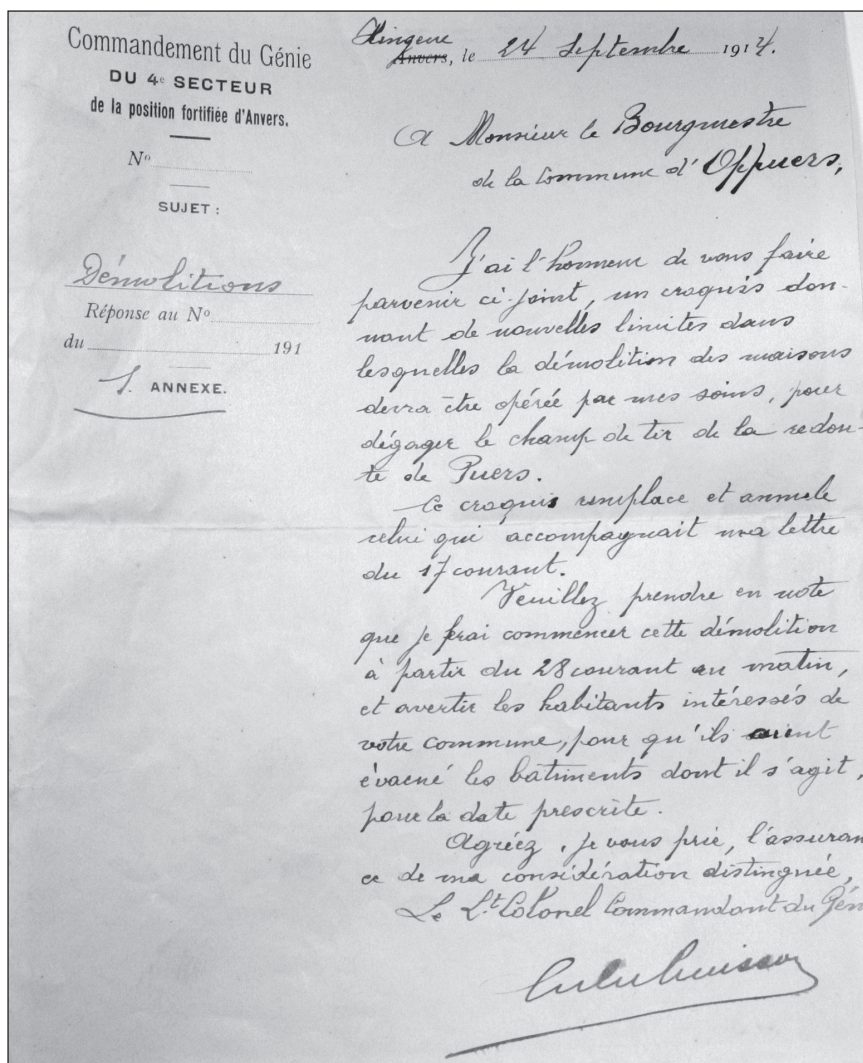 Commandement du Génie
DU 4e SECTEUR
de la position fortifiée d'Anvers.
No
SUJET :
Démolitions
Réponse au No
du 191
1 ANNEXE.
Hingene
Anvers, le 24 Septembre 1914.
A Monsieur le Bourgmestre
de la Commune d'Oppuers,
J'ai l'honneur de vous faire
parvenir ci-joint, un croquis don-
nant de nouvelles limites dans
lesquelles la démolition des maisons
devra être opérée par mes soins, pour
dégager le champ de tir de la redou-
te de Puers.
Ce croquis remplace et annule
celui qui accompagnait ma lettre
du 17 courant.
Veuillez prendre en note
que je ferai commencer cette démolition
à partir du 28 courant au matin,
et avertir les habitants intéressés de
votre commune, pour qu'ils aient
évacué les bâtiments dont il s'agit,
pour la date prescrite.
Agréez, je vous prie, l'assuran
ce de ma considération distinguée,
Le Lt Colonel Commandant du Gén